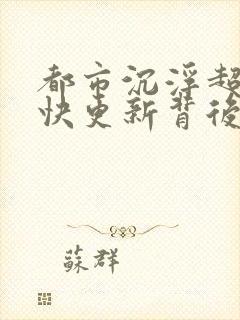 都市沉浮超
快更新背後
蘇群